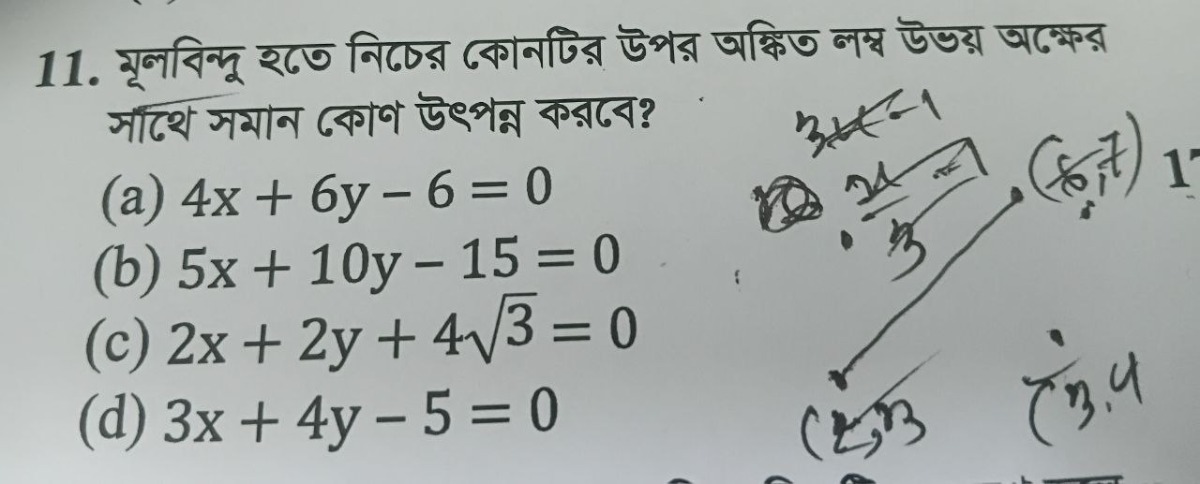 11. মূলবিন্দু হতে নিচের কোনটির উপর অঙ্কিত লম্ব উভয় অক্ষের
সাথে সমান কোণ উৎপন্ন করবে?
(a) 4x + 6y – 6 = 0
(b) 5x + 10y – 15 = 0
(c) 2x + 2y + 4√3 = 0
(d) 3x + 4y – 5 = 0